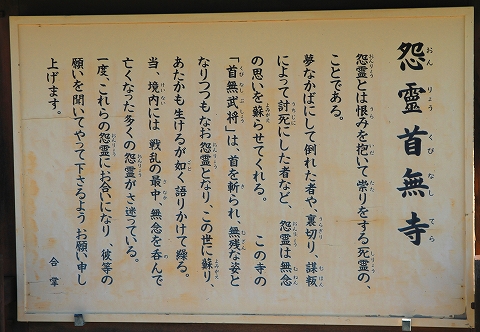 怨霊首無寺
おんりょうくびなしてら
怨霊とは恨みを抱いて祟りをする死霊の、
ことである。
夢なかばにして倒れた者や、裏切り、謀叛
によって討死にした者など、怨霊は無念
の思いを蘇らせてくれる。　この寺の
「首無武将」は、首を斬られ、無残な姿と
なりつつもなお怨霊となり、この世に蘇り、
あたかも生けるが如く語りかけて縩る。
当、境内には　戦乱の最中、無念を呑んで
亡くなった多くの怨霊がさ迷っている。
一度、これらの怨霊にお合いになり、彼等の
願いを聞いてやって下さるよう、お願い申し
上げます。
合掌